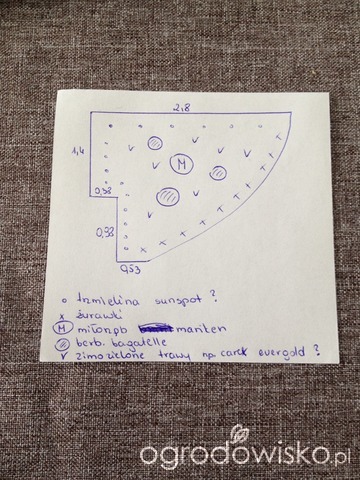 2,8
1,4
M
0,38
0,98
0,53
o trzmielina sunspot ?
x żurawki
M miłorząb mariken
berb. bagatelle
v zimozielone trawy np carex evergold ?
ogrodowisko.pl